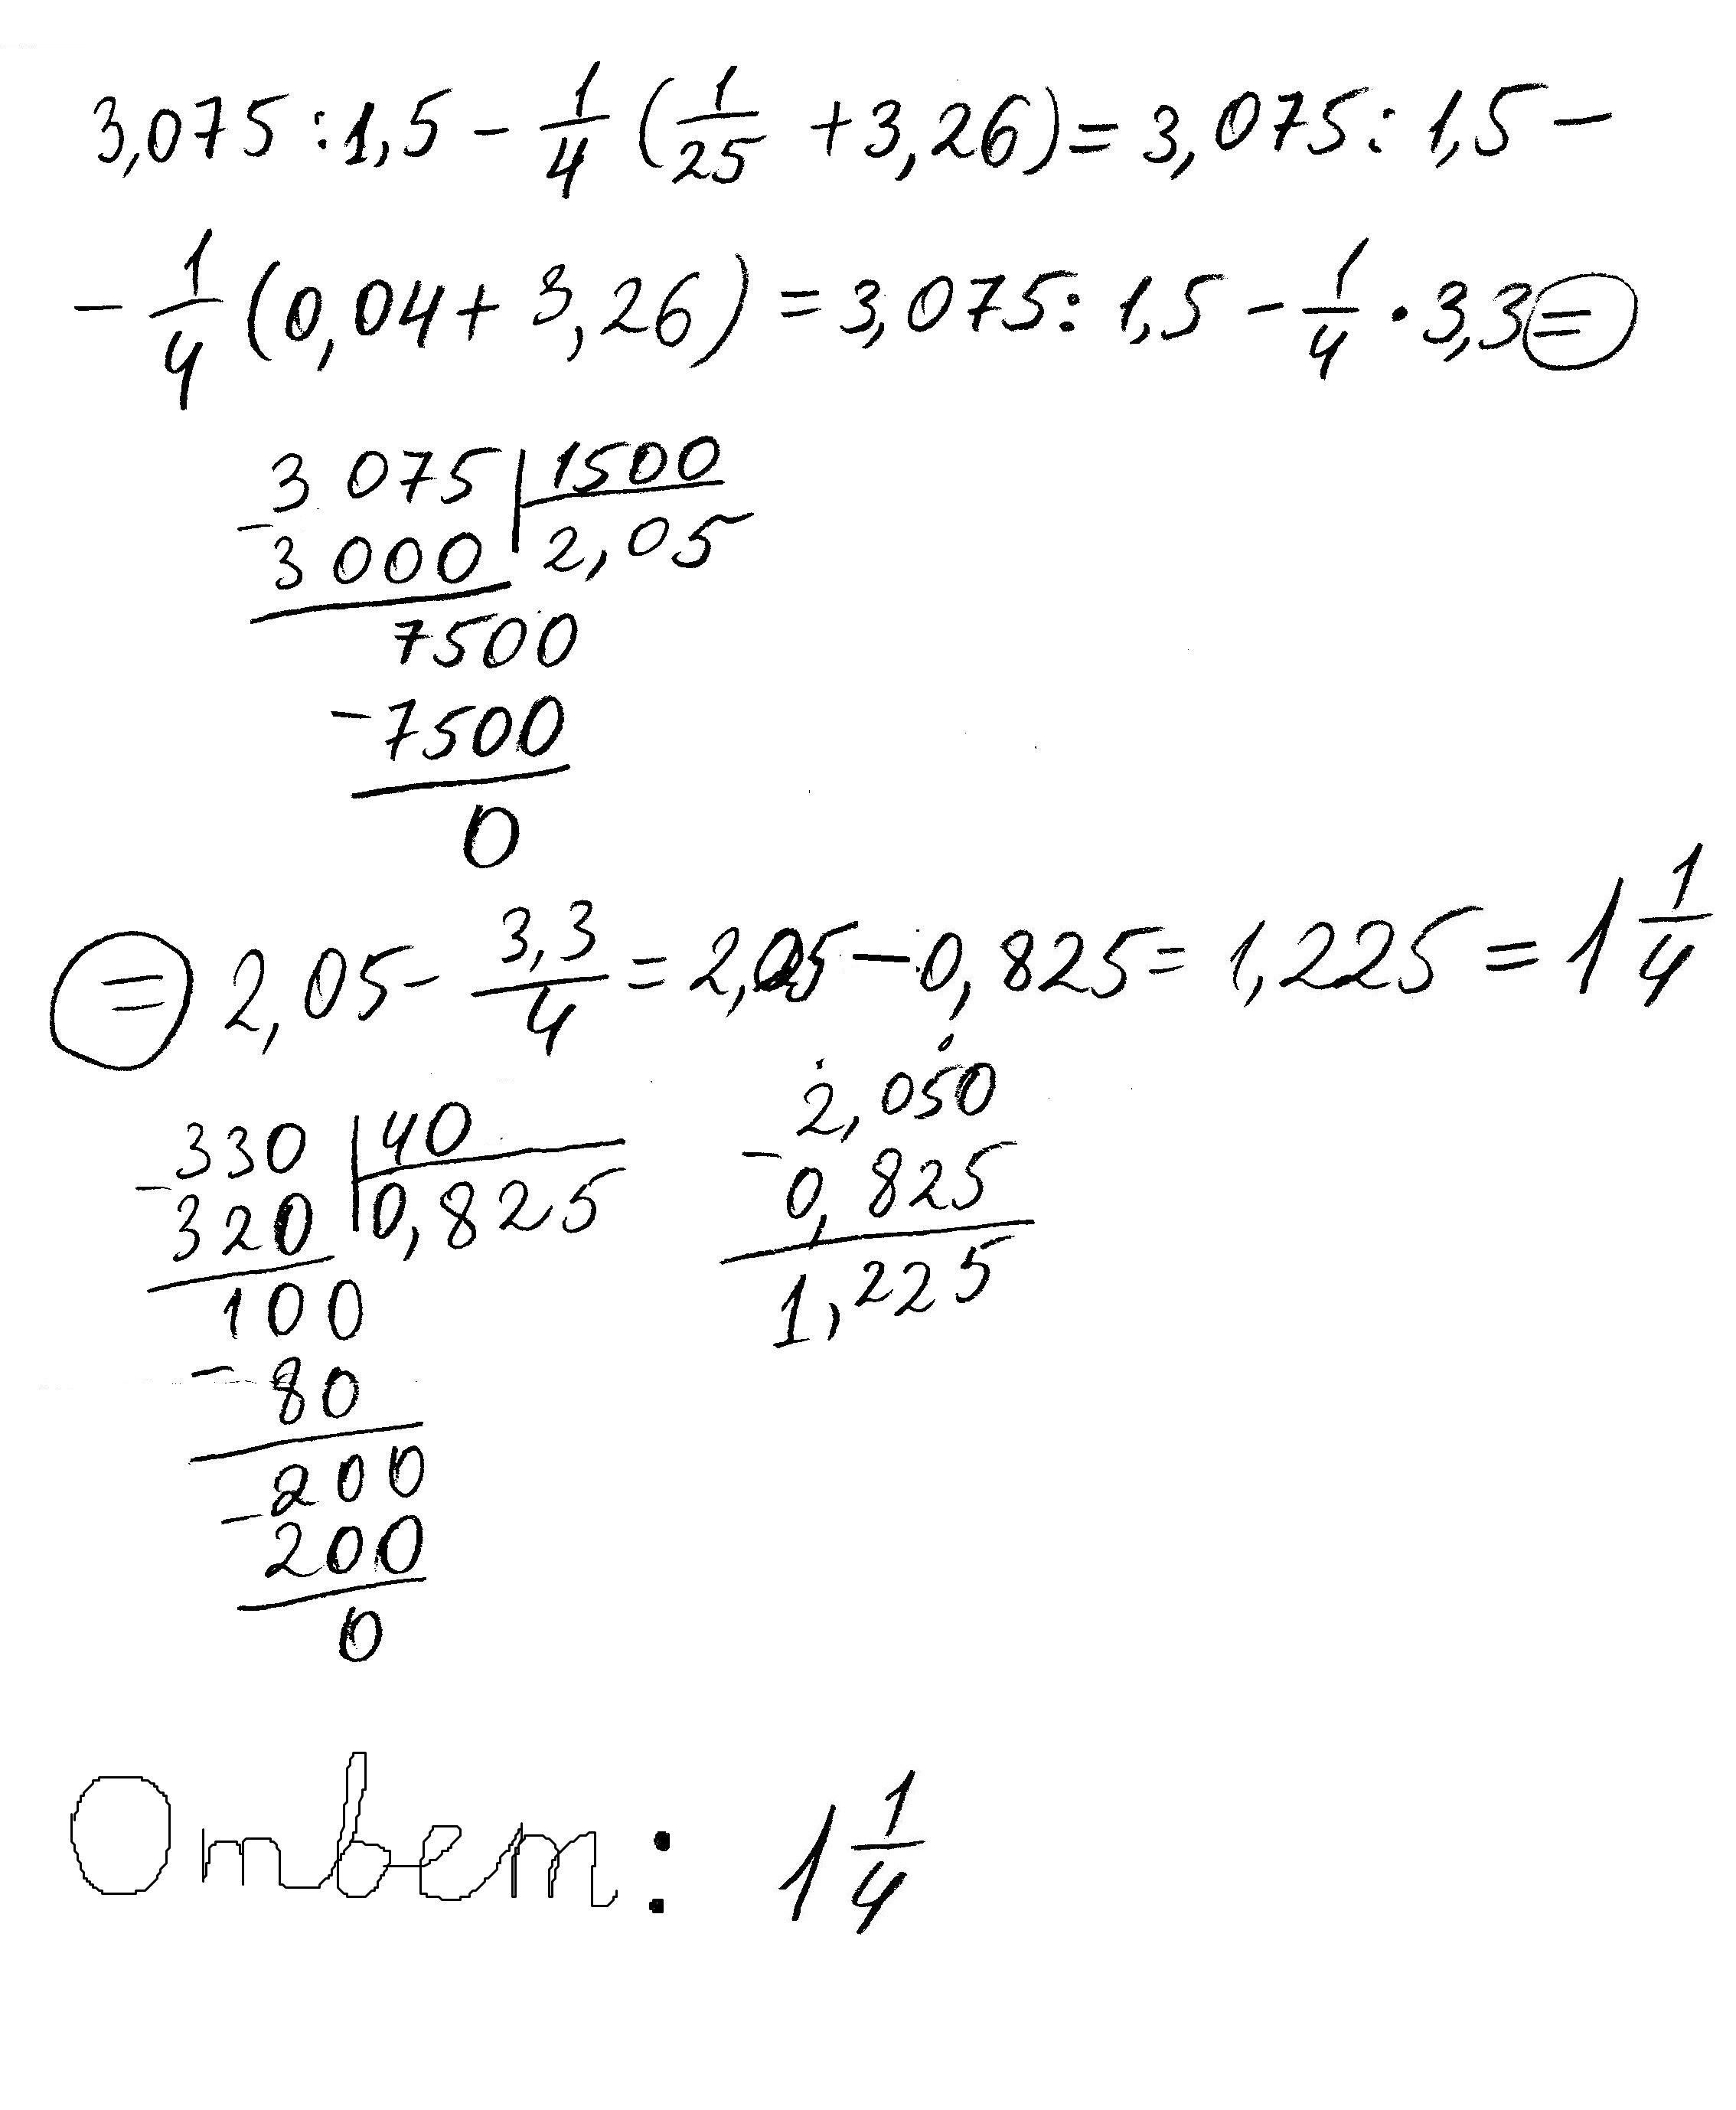 3,075 : 1,5 - 1/4 (1/25 + 3,26) = 3,075 : 1,5 -
- 1/4 (0,04 + 3,26) = 3,075 : 1,5 - 1/4 · 3,3 =
3075 | 1500
- 3000 | 2,05
7500
- 7500
0
= 2,05 - 3,3/4 = 2,05 - 0,825 = 1,225 = 1 1/4
330 | 40
- 320 | 0,825
100
- 80
200
- 200
0
2,050
- 0,825
1,225
Ответ: 1 1/4